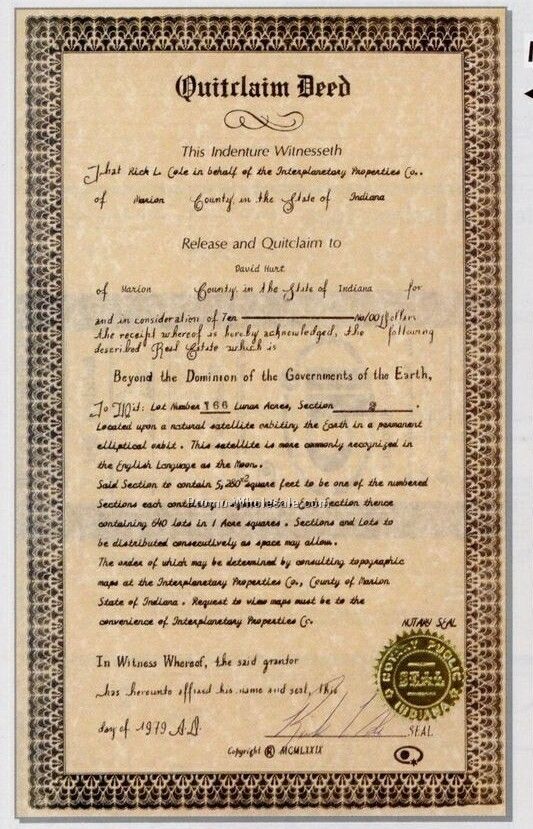 Quitclaim Deed
This Indenture Witnesseth
That Rick L. Cole in behalf of the Interplanetary Properties Co.,
of Marion County, in the State of Indiana
Release and Quitclaim to
David Hurt
of Marion County, in the State of Indiana for
and in consideration of Ten No/00 Dollars
the receipt whereof is hereby acknowledged, the following
described Real Estate which is
Beyond the Dominion of the Governments of the Earth,
To Wit: Lot Number 166 Lunar Acres, Section 2.
Located upon a natural satellite orbiting the Earth in a permanent
elliptical orbit. This satellite is more commonly recognized in
the English Language as the Moon.
Said Section to contain 5,280² square feet to be one of the numbered
Sections each containing Section thence
PromosWholesale.com
containing 640 lots in 1 Acre squares. Sections and Lots to
be distributed consecutively as space may allow.
The order of which may be determined by consulting topographic
maps at the Interplanetary Properties Co., County of Marion
State of Indiana. Request to view maps must be to the
convenience of Interplanetary Properties Co.
NOTARY SEAL
NOTARY PUBLIC
SEAL
INDIANA
In Witness Whereof, the said grantor
has hereunto affixed his name and seal, this
day of 1979 A.D. SEAL
Copyright ® MCMLXXIX